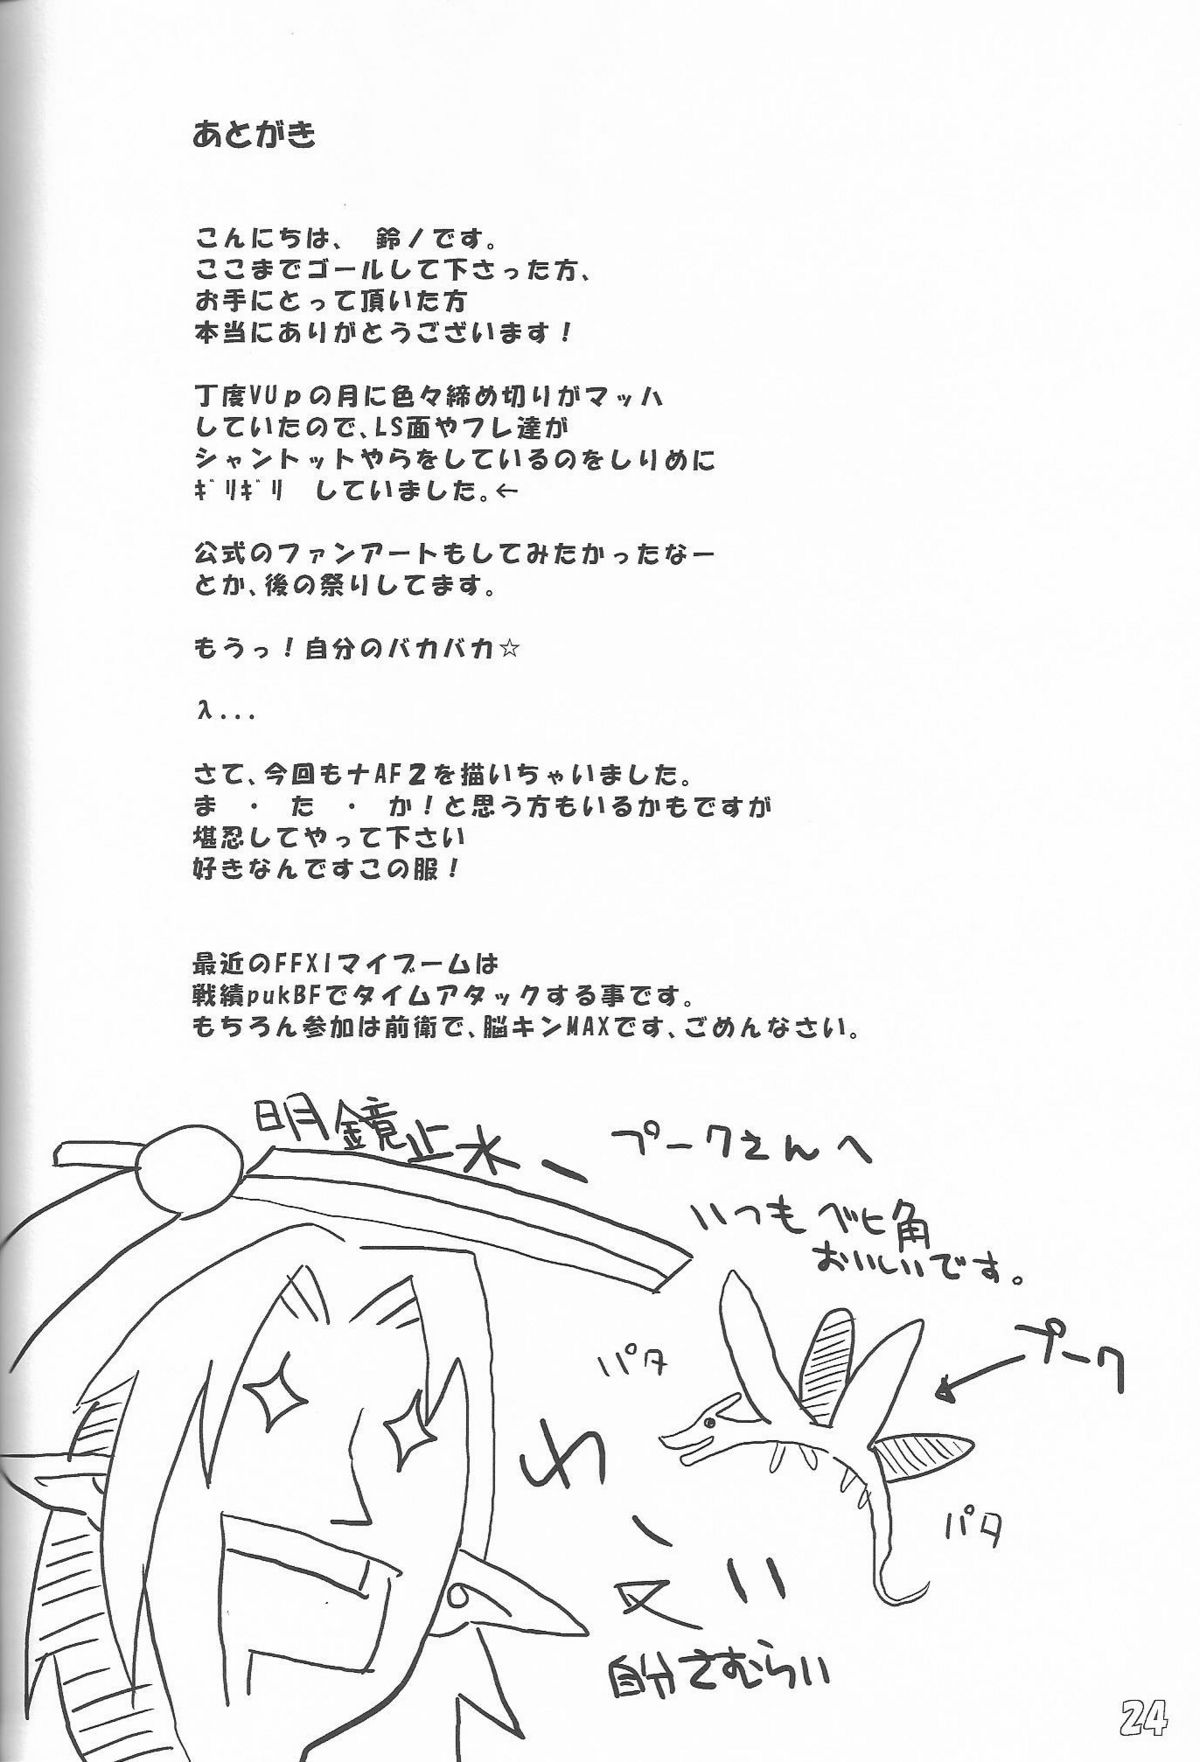 あとがき
こんにちは、　鈴ノです。
ここまでゴールして下さった方、
お手にとって頂いた方
本当にありがとうございます！
丁度VUｐの月に色々締め切りがマッハ
していたので、LS面やフレ達が
シャントットやらをしているのをしりめに
ｷﾞﾘｷﾞﾘ　していました。←
公式のファンアートもしてみたかったなー
とか、後の祭りしてます。
もうっ！自分のバカバカ☆
λ...
さて、今回もナAF２を描いちゃいました。
ま　・　た　・　か！と思う方もいるかもですが
堪忍してやって下さい
好きなんですこの服！
最近のFFXIマイブームは
戦績pukBFでタイムアタックする事です。
もちろん参加は前衛で、脳キンMAXです、ごめんなさい。
明鏡止水ー
プークさんへ
いつもベヒ角
おいしいです。
プーク
パタ
パタ
自分さむらい
24